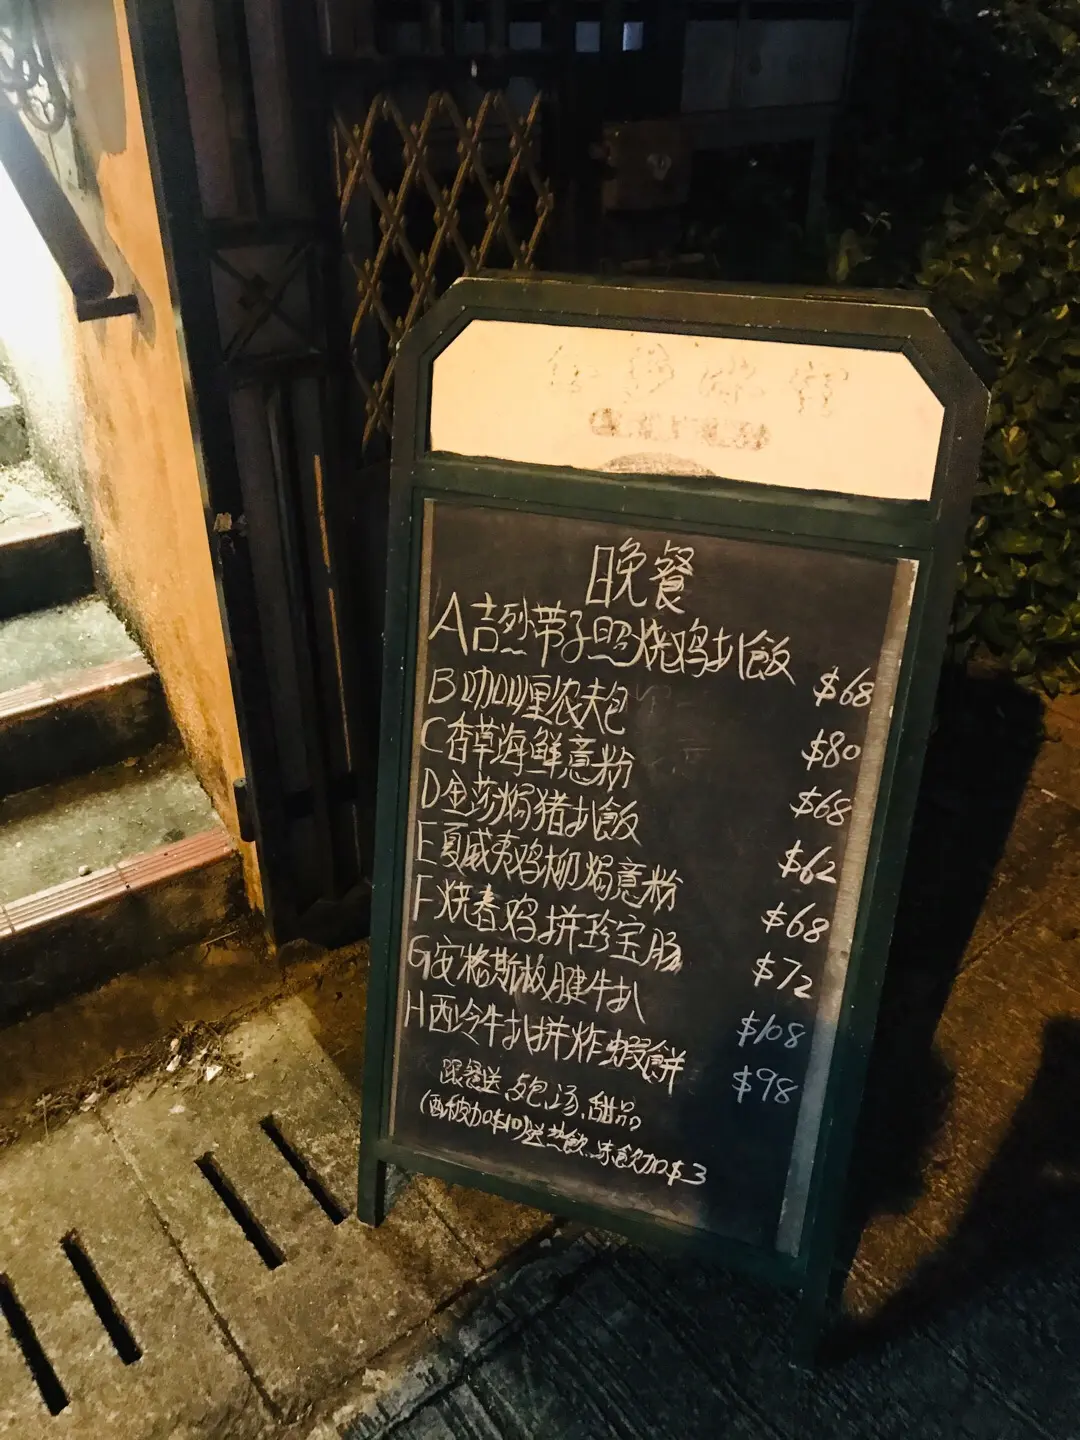 晚餐
A吉烈带子照烧鸡扒飯 $68
B咖喱农夫包 $80
C香草海鲜意粉 $68
D金莎焗猪扒飯 $62
E夏威夷鸡柳焗意粉 $68
F烧春鸡拼珍宝肠 $72
G安格斯板腱牛扒 $108
H西冷牛扒拼炸蝦餅 $98
跟餐送 包、汤、甜品
加$10送热飲、冻飲加$3